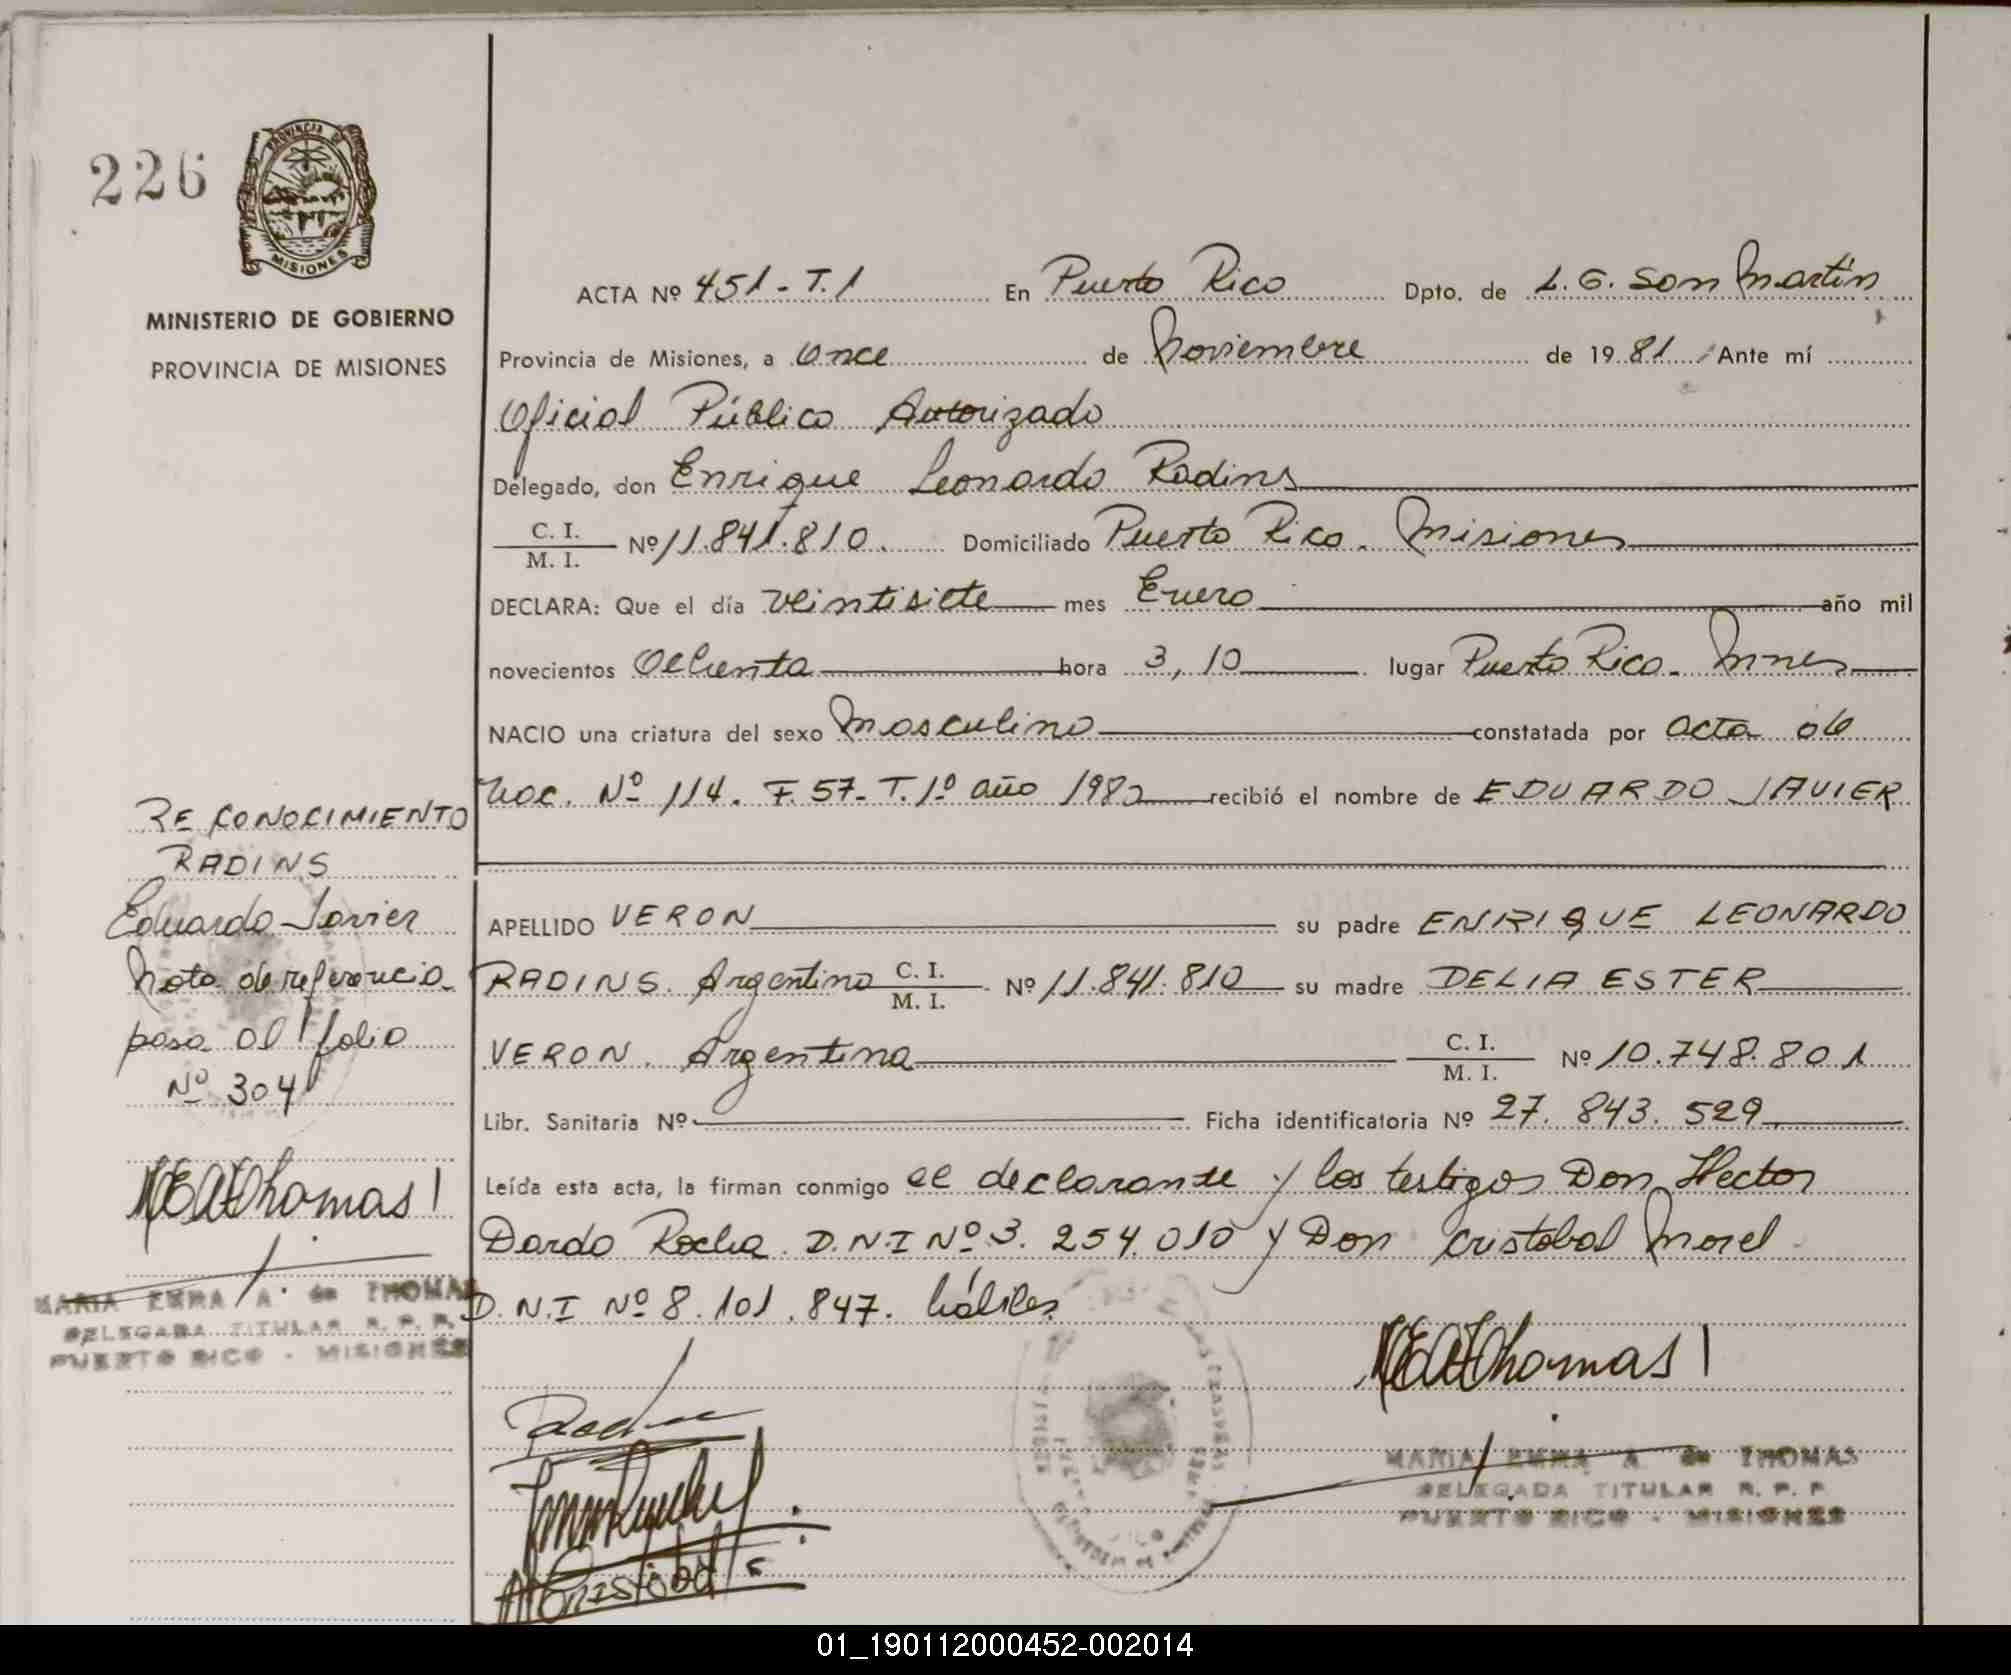 226
PROVINCIA DE
MISIONES
MINISTERIO DE GOBIERNO
PROVINCIA DE MISIONES
ACTA Nº 451-T.1 En Puerto Rico Dpto. de L.G. San Martín
Provincia de Misiones, a Once de Noviembre de 1981 Ante mí
Oficial Público Autorizado
Delegado, don Enrique Leonardo Radins
C. I.
M. I. Nº 11.841.810. Domiciliado Puerto Rico. Misiones
DECLARA: Que el día veintisiete mes Enero año mil
novecientos Ochenta hora 3,10 lugar Puerto Rico. Mnes
NACIO una criatura del sexo Masculino constatada por acta de
Nac. Nº 114. F. 57- T. 1º año 1980 recibió el nombre de EDUARDO JAVIER
APELLIDO VERON su padre ENRIQUE LEONARDO
RADINS. Argentino C. I. M. I. Nº 11.841.810 su madre DELIA ESTER
VERON. Argentina C. I. M. I. Nº 10.748.801
Libr. Sanitaria Nº Ficha identificatoria Nº 27. 843. 529
Leída esta acta, la firman conmigo el declarante y los testigos Don Hector
Dardo Rocha D.N.I Nº 3. 254.010 y Don Cristobal Morel
D.N.I Nº 8.101.847. hábiles
RECONOCIMIENTO
RADINS
Eduardo Javier
Nota de referencia
pasa al folio
Nº 304
MEAThomas
MARIA EMMA A. de THOMAS
DELEGADA TITULAR R. P. P.
PUERTO RICO - MISIONES
MEAThomas
MARIA EMMA A. de THOMAS
DELEGADA TITULAR R. P. P.
PUERTO RICO - MISIONES
01_190112000452-002014